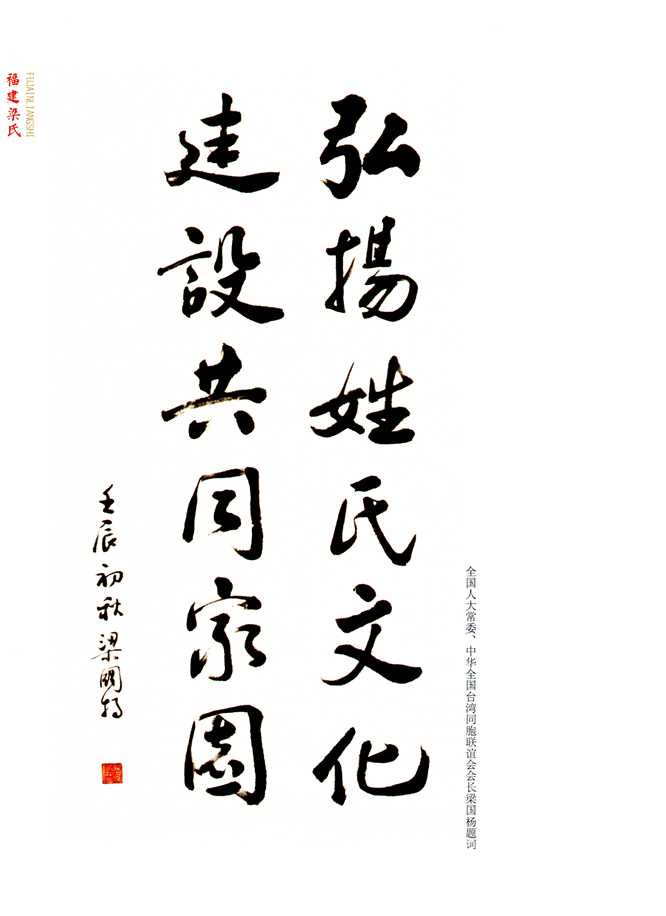 福建梁氏
FUJIAINLIANGSHI
弘揚姓氏文化
建設共同家園
壬辰初秋梁國揚
全国人大常委、中华全国台湾同胞联谊会会长梁国杨题词